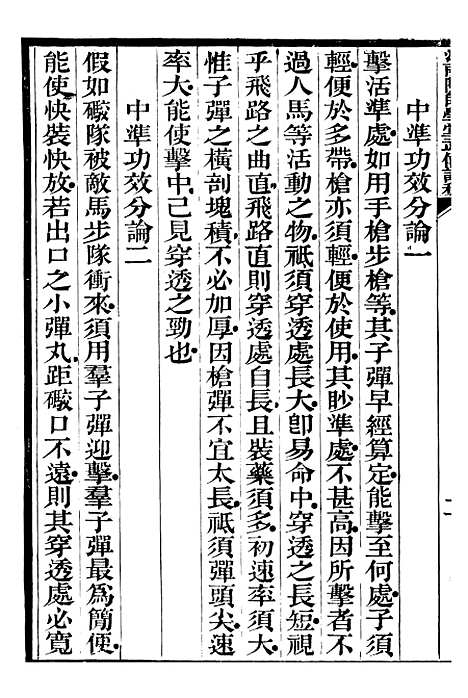 中準功效分論一
擊活準處如用手槍步槍等其子彈早經算定能擊至何處子須
輕便於多帶槍亦須輕便於使用其眇準處不甚高因所擊者不
過人馬等活動之物祇須穿透處長大卽易命中穿透之長短視
乎飛路之曲直飛路直則穿透處自長且裝藥須多初速率須大
惟子彈之橫剖塊積不必加厚因槍彈不宜太長祇須彈頭尖速
率大能使擊中己見穿透之勁也
中準功效分論二
假如礮隊被敵馬步隊衝來須用羣子彈迎擊羣子彈最為簡便
能使快裝快放若出口之小彈丸距礮口不遠則其穿透處必寬